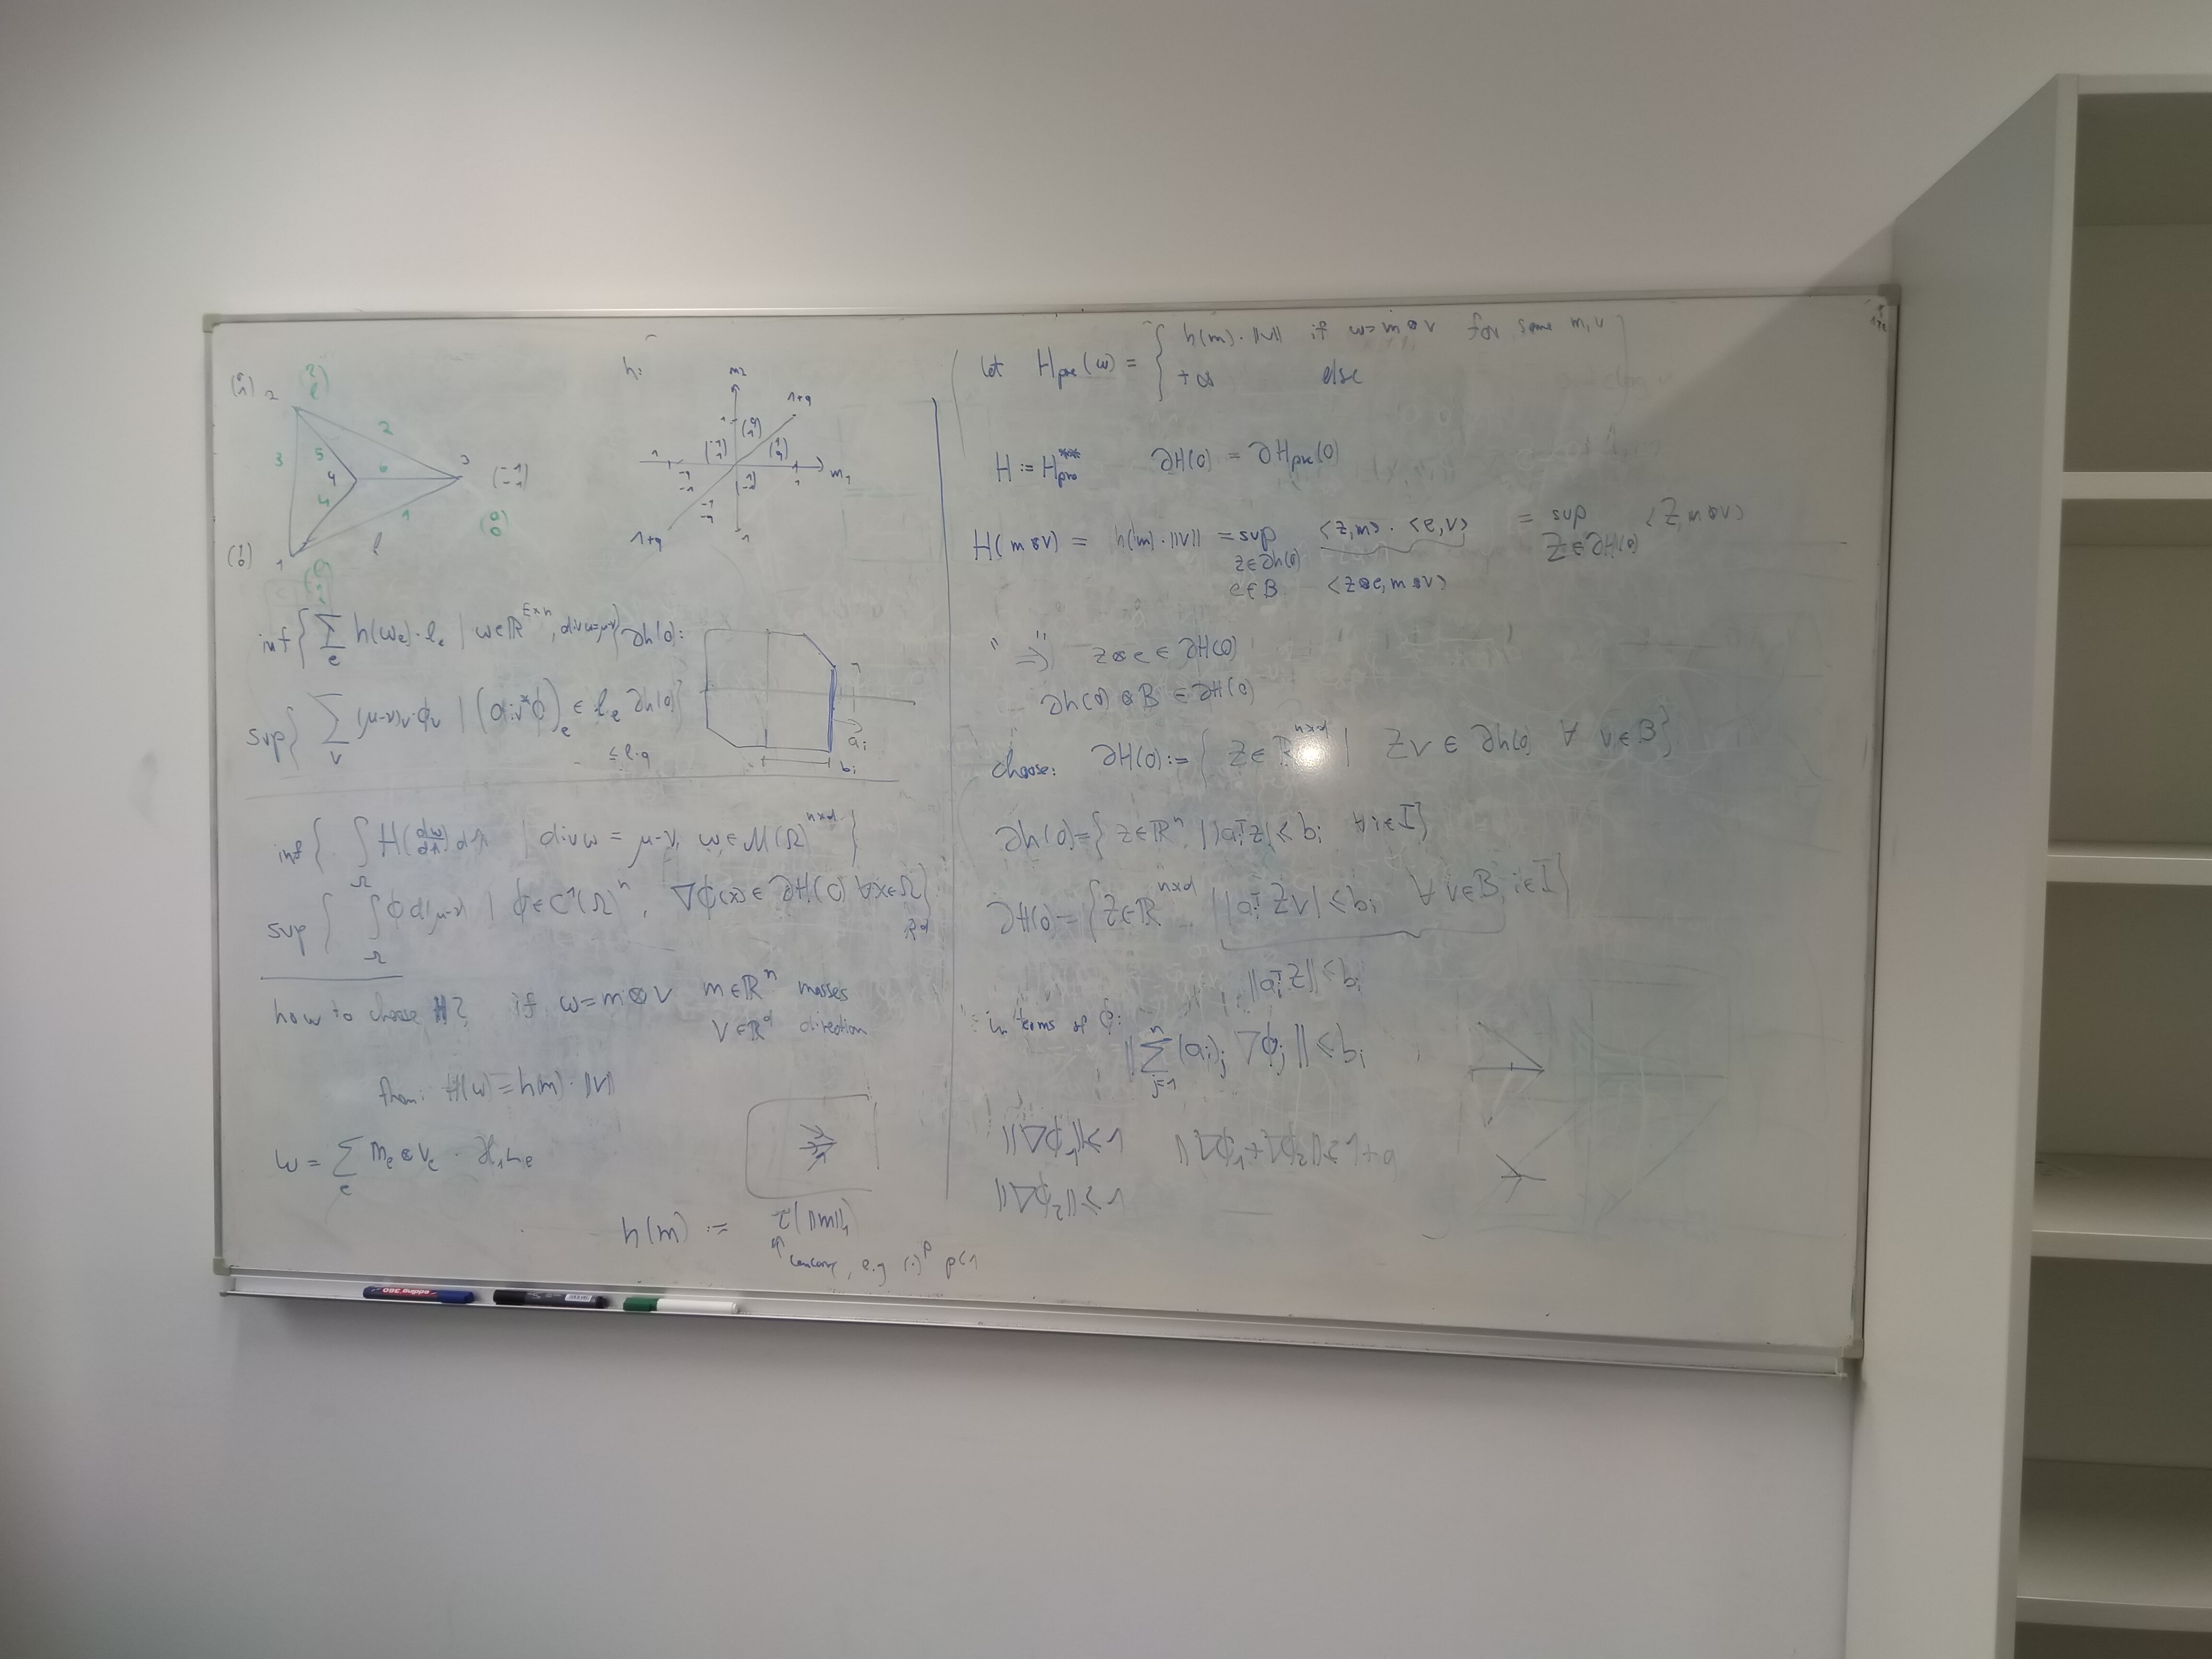 (0 1) 2
3
5
2
6
4
4
3
(-1 -1)
1
(0 0)
(1 0) 1
h:
m₂
1+a
m₁
1
1
1+a
1
inf{ Σ_e h(w_e)·ℓ_e | w∈ℝ^{E×n}, div w=μ-ν}
∂h(0):
sup{ Σ_V (μ-ν)_V·ϕ_V | (div*ϕ)_e ∈ ℓ_e ∂h(0)}
a_i
b_i
inf{ ∫_Ω H(dw/dλ) dλ | div w = μ-ν, w∈M(Ω)^{n×d} }
sup{ ∫_Ω ϕ d(μ-ν) | ϕ∈C¹(Ω)^n, ∇ϕ(x)∈∂H(0) ∀x∈Ω}
how to choose H? if w=m⊗v m∈ℝ^n masses
v∈ℝ^d direction
then: H(w)=h(m)·||v||
w = Σ_e m_e⊗v_e · ℋ¹⌞e
h(m) := τ(||m||₁)
↑ concave, e.g. (·)^p p<1
let H_pre(w) = { h(m)·||v|| if w=m⊗v for some m,v
+∞ else
H := H_pre^** ∂H(0) = ∂H_pre(0)
H(m⊗v) = h(m)·||v|| = sup_{z∈∂h(0) e∈B} <z,m>·<e,v> = sup_{Z∈∂H(0)} <Z,m⊗v>
<z⊗e,m⊗v>
"⇒" z⊗e ∈ ∂H(0)
∂h(0)⊗B ∈ ∂H(0)
choose: ∂H(0):={ Z∈ℝ^{n×d} | Zv ∈ ∂h(0) ∀ v∈B}
∂h(0)={ z∈ℝ^n | |a_i^T z|≤b_i ∀i∈I}
∂H(0)={Z∈ℝ^{n×d} | |a_i^T Zv|≤b_i ∀v∈B, i∈I}
||a_i^T Z||≤b_i
in terms of ϕ:
||Σ_{j=1}^n (a_i)_j ∇ϕ_j||≤b_i
||∇ϕ₁||≤1 ||∇ϕ₁+∇ϕ₂||≤1+a
||∇ϕ₂||≤1
edding 360